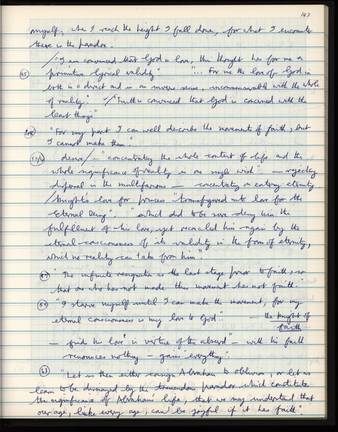 147
myself, when I reach the height I fall down, for what I encounter
there is the paradox.
"I am convinced that God is love, this thought has for me a
primitive lyrical validity" "... For me the love of God is
both in a direct and in an inverse sense, incommensurable with the whole
of reality." "Faith is convinced that God is concerned with the
least things"
"For my part I can well describe the movements of faith, but
I cannot make them"
"concentrating the whole content of life and the
whole significance of reality in one single wish" — rejecting
dispersal in the multifarious — concentration
Knight's love for princess transfigured into love for the
"Eternal Being". "which did to be sure deny him the
fulfilment of his love, yet reconciled him again by the
eternal consciousness of its validity in the form of eternity,
which no reality can take from him"
"The infinite resignation is the last stage prior to faith, so
that one who has not made this movement has not faith."
"I
until I can make the movement, for my
eternal consciousness is my love to God" the knight of
faith
— finds his love "in virtue of the absurd" — with his faith
renounces nothing — gains everything.
"Let us then either
Abraham to oblivion, or let us
learn to be dismayed by the tremendous paradox which constitutes
the significance of Abraham's life, that we may understand that
our age, like every age, can be joyful if it has faith"